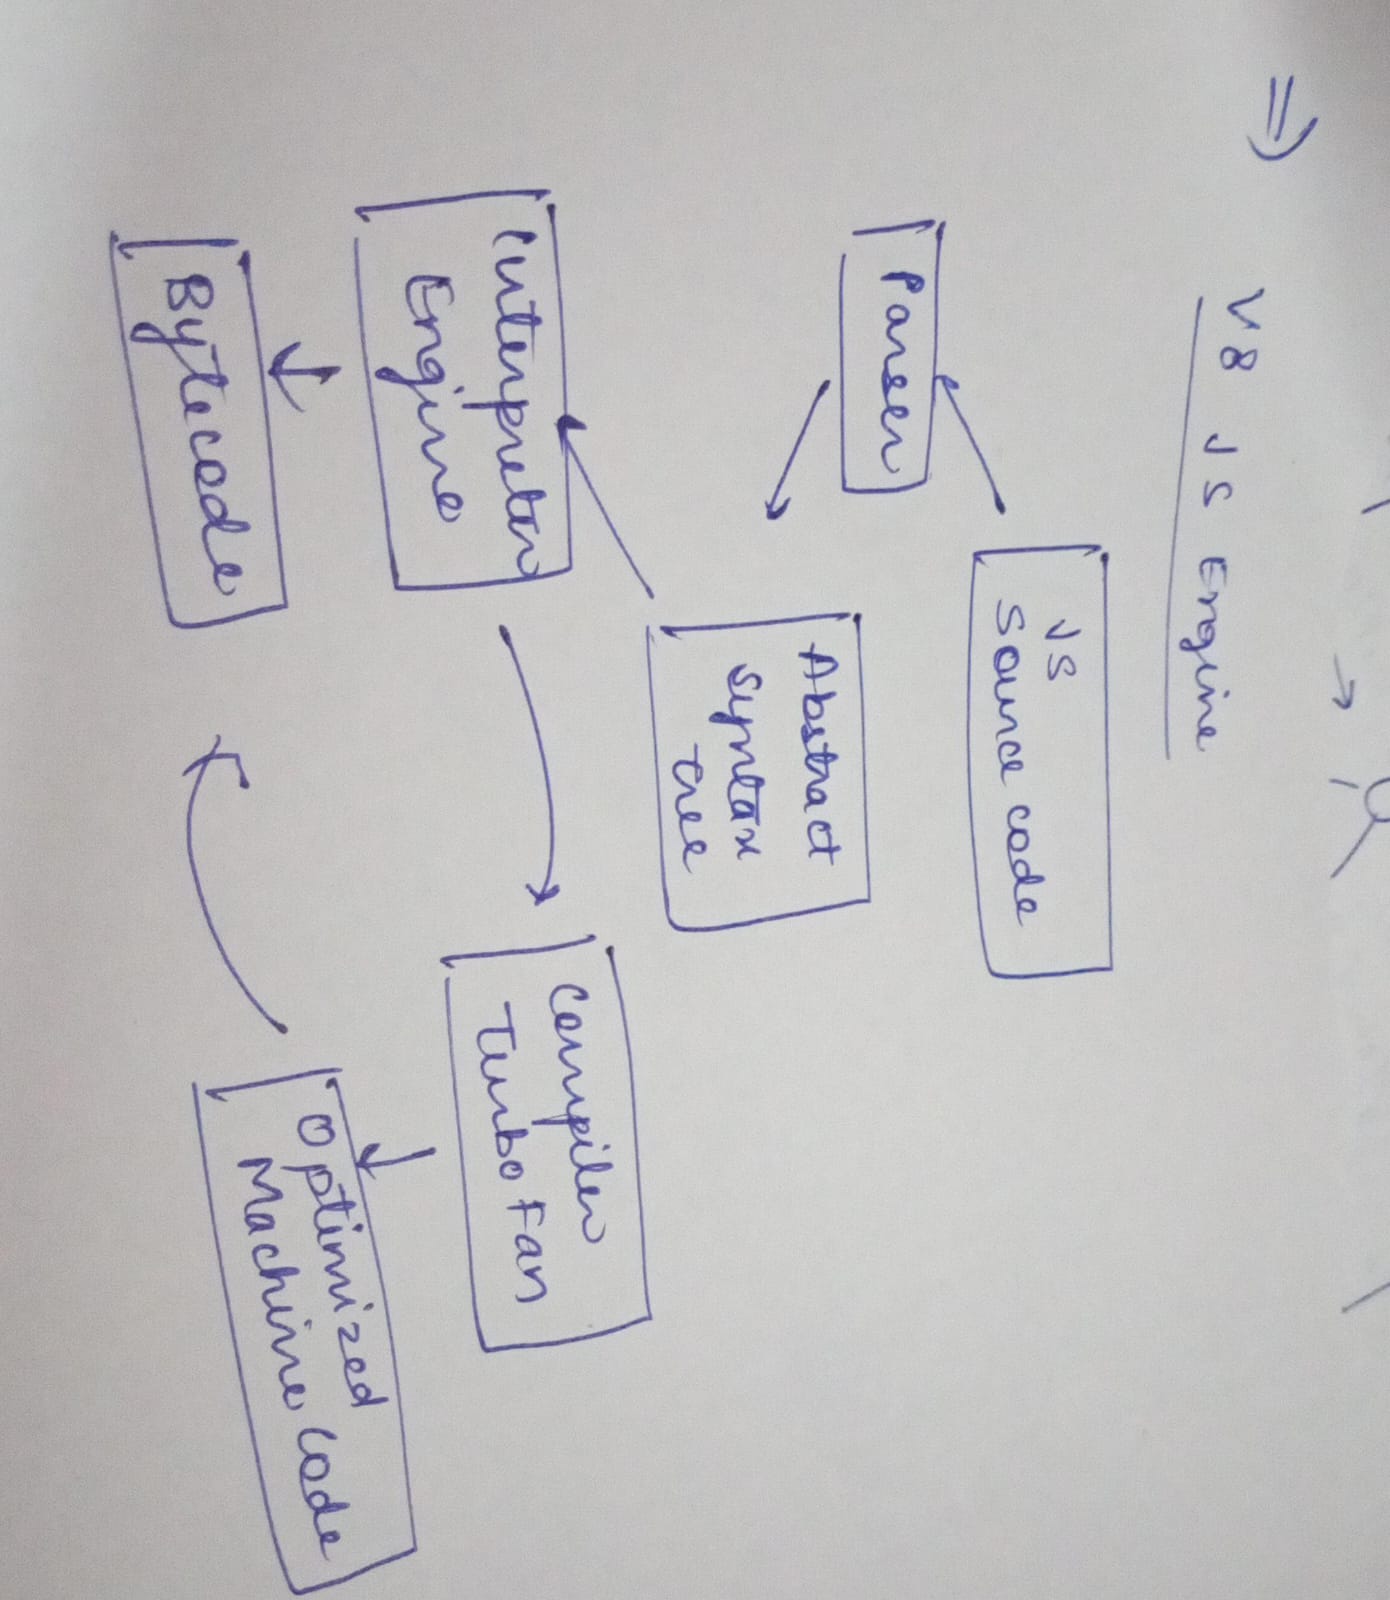 ⇒ V8 JS Engine
JS
Source code
Parser
Abstract
Syntax
tree
Interpreter
Engine
Compiler
Turbo Fan
Bytecode
Optimized
Machine code